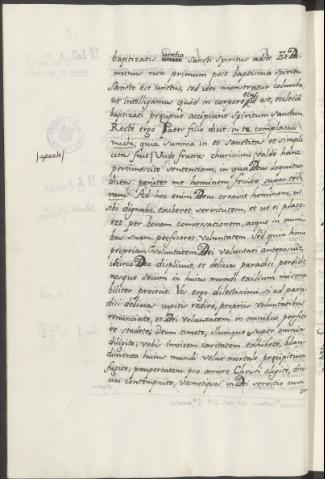 baptizatis Sancti Spiritus adsit. Et D̃o
minus non primum post baptisma Spiritu
Sancto est unctus, sed ideo monstratur columba,
ut intelligamus quòd in corpore eius, id est, ecclesia
baptizati precipue accipiunt Spiritum Sanctum.
Recte ergo Pater filio dicit, in te complacui
mihi, quia summa in eo sanctitas et simpli
citas fuit. Unde fratres charissimi, valde hanc
pertimescite sententiam, in qua Deus loquitur
dicens: penitet me hominem fecisse super ter
ram. Ad hoc enim Deus creavit hominem, ut
sibi dignam exiberet servitutem, et ut ei place
ret per bonam conversationem, atque in omni
bus suam perficeret voluntatem. Sed quia homo
propriam voluntatem Dei voluntati anteposuit,
idcirco Deo displicuit, et delicias paradisi perdidit,
seque deum in huius mundi exilium misera
biliter proiecit. Vos ergo dilectissimi, si ad para
disi delicias cupitis redire, propriis voluntatibus
renunciate, et Dei voluntatem in omnibus perfice
re studete; Deum timete, illumque super omnia
diligite; vobis invicem caritatem exhibete, blan
dimenta huius mundi velut mortale precipitium
fugite, paupertatem pro amore Christi eligite, divi
tias contemnite, vosmetipsos in Dei servitio cum